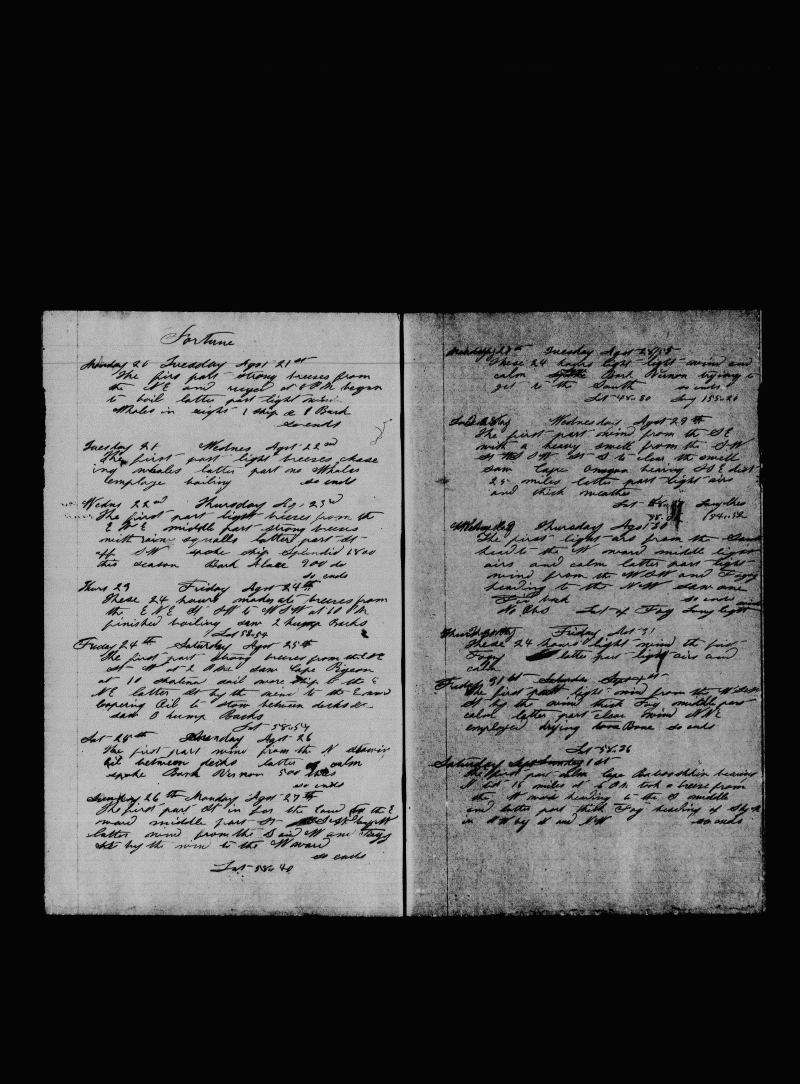 Fortune
Monday 20 Tuesday Agst 21st
The first part strong breezes from
the NE and at 6 PM began
to boil latter part light
Whales in sight 1 ship & 1 Bark
so ends
Tuesday 21 Wednes Agst 22nd
The first part light breezes chase
ing whales latter part no Whales
employe boiling so ends
Wednes 22nd Thursday 23rd
The first part light breezes from the
E middle part strong breezes
with rain squalls latter part St
off SW spoke ship Splendid 1800
this season Bark 900 do
so ends
Thurs 23 Friday Agst 24th
These 24 hours moderate breezes from
the ENE St SW to WSW at 10 PM
finished boiling saw 2 hump Backs
Lat 58-54
Friday 24th Saturday Agst 25th
The first part strong breezes from the NE
St W at 2 PM saw Cape
at 10 sail more ship to the E
NE latter St by the wind to the E and
Oil to Stow between decks &c
saw hump Backs
Lat 58-54
Sat 25th Sunday Agst 26
The first part wind from the N
oil between decks latter calm
spoke Bark Vernon 500
so ends
Sunday 26th Monday Agst 27th
The first part St in for the land to the E
ward middle part St
latter wind from the S and W and foggy
St by the wind to the W ward
so ends
Lat 58-40
Monday 27th Tuesday Agst 28
These 24 hours light wind and
calm Bark Vernon trying to
get to the South so ends
Lat 48-30 Long 155-20
Wednesday Agst 29th
The first part wind from the SE
with a heavy swell from the SW
St to clear the swell
saw Cape bearing SSE dist
25 miles latter part light airs
and thick weather
Lat 58
154-52
Thursday Agst 30
The first light airs from the
head to the W ward middle light
airs and calm latter part light
wind from the WSW and Foggy
heading to the NW saw one
Fin back so ends
No Obs Lat & Fog Long light
Friday Agst 31
These 24 hours light wind the first
Foggy latter part light airs and
calm
Friday 31st Saturday Sept 1st
The first part light wind from the WSW
St by the wind thick Fog middle part
calm latter part clear wind NNE
employed drying Bone so ends
Lat 58-26
Saturday Sunday
The first part calm Cape bearing
N dist 15 miles at 6 PM took a breeze from
the W ward heading to the middle
and latter part thick Fog heading
in NW by N and NW so ends